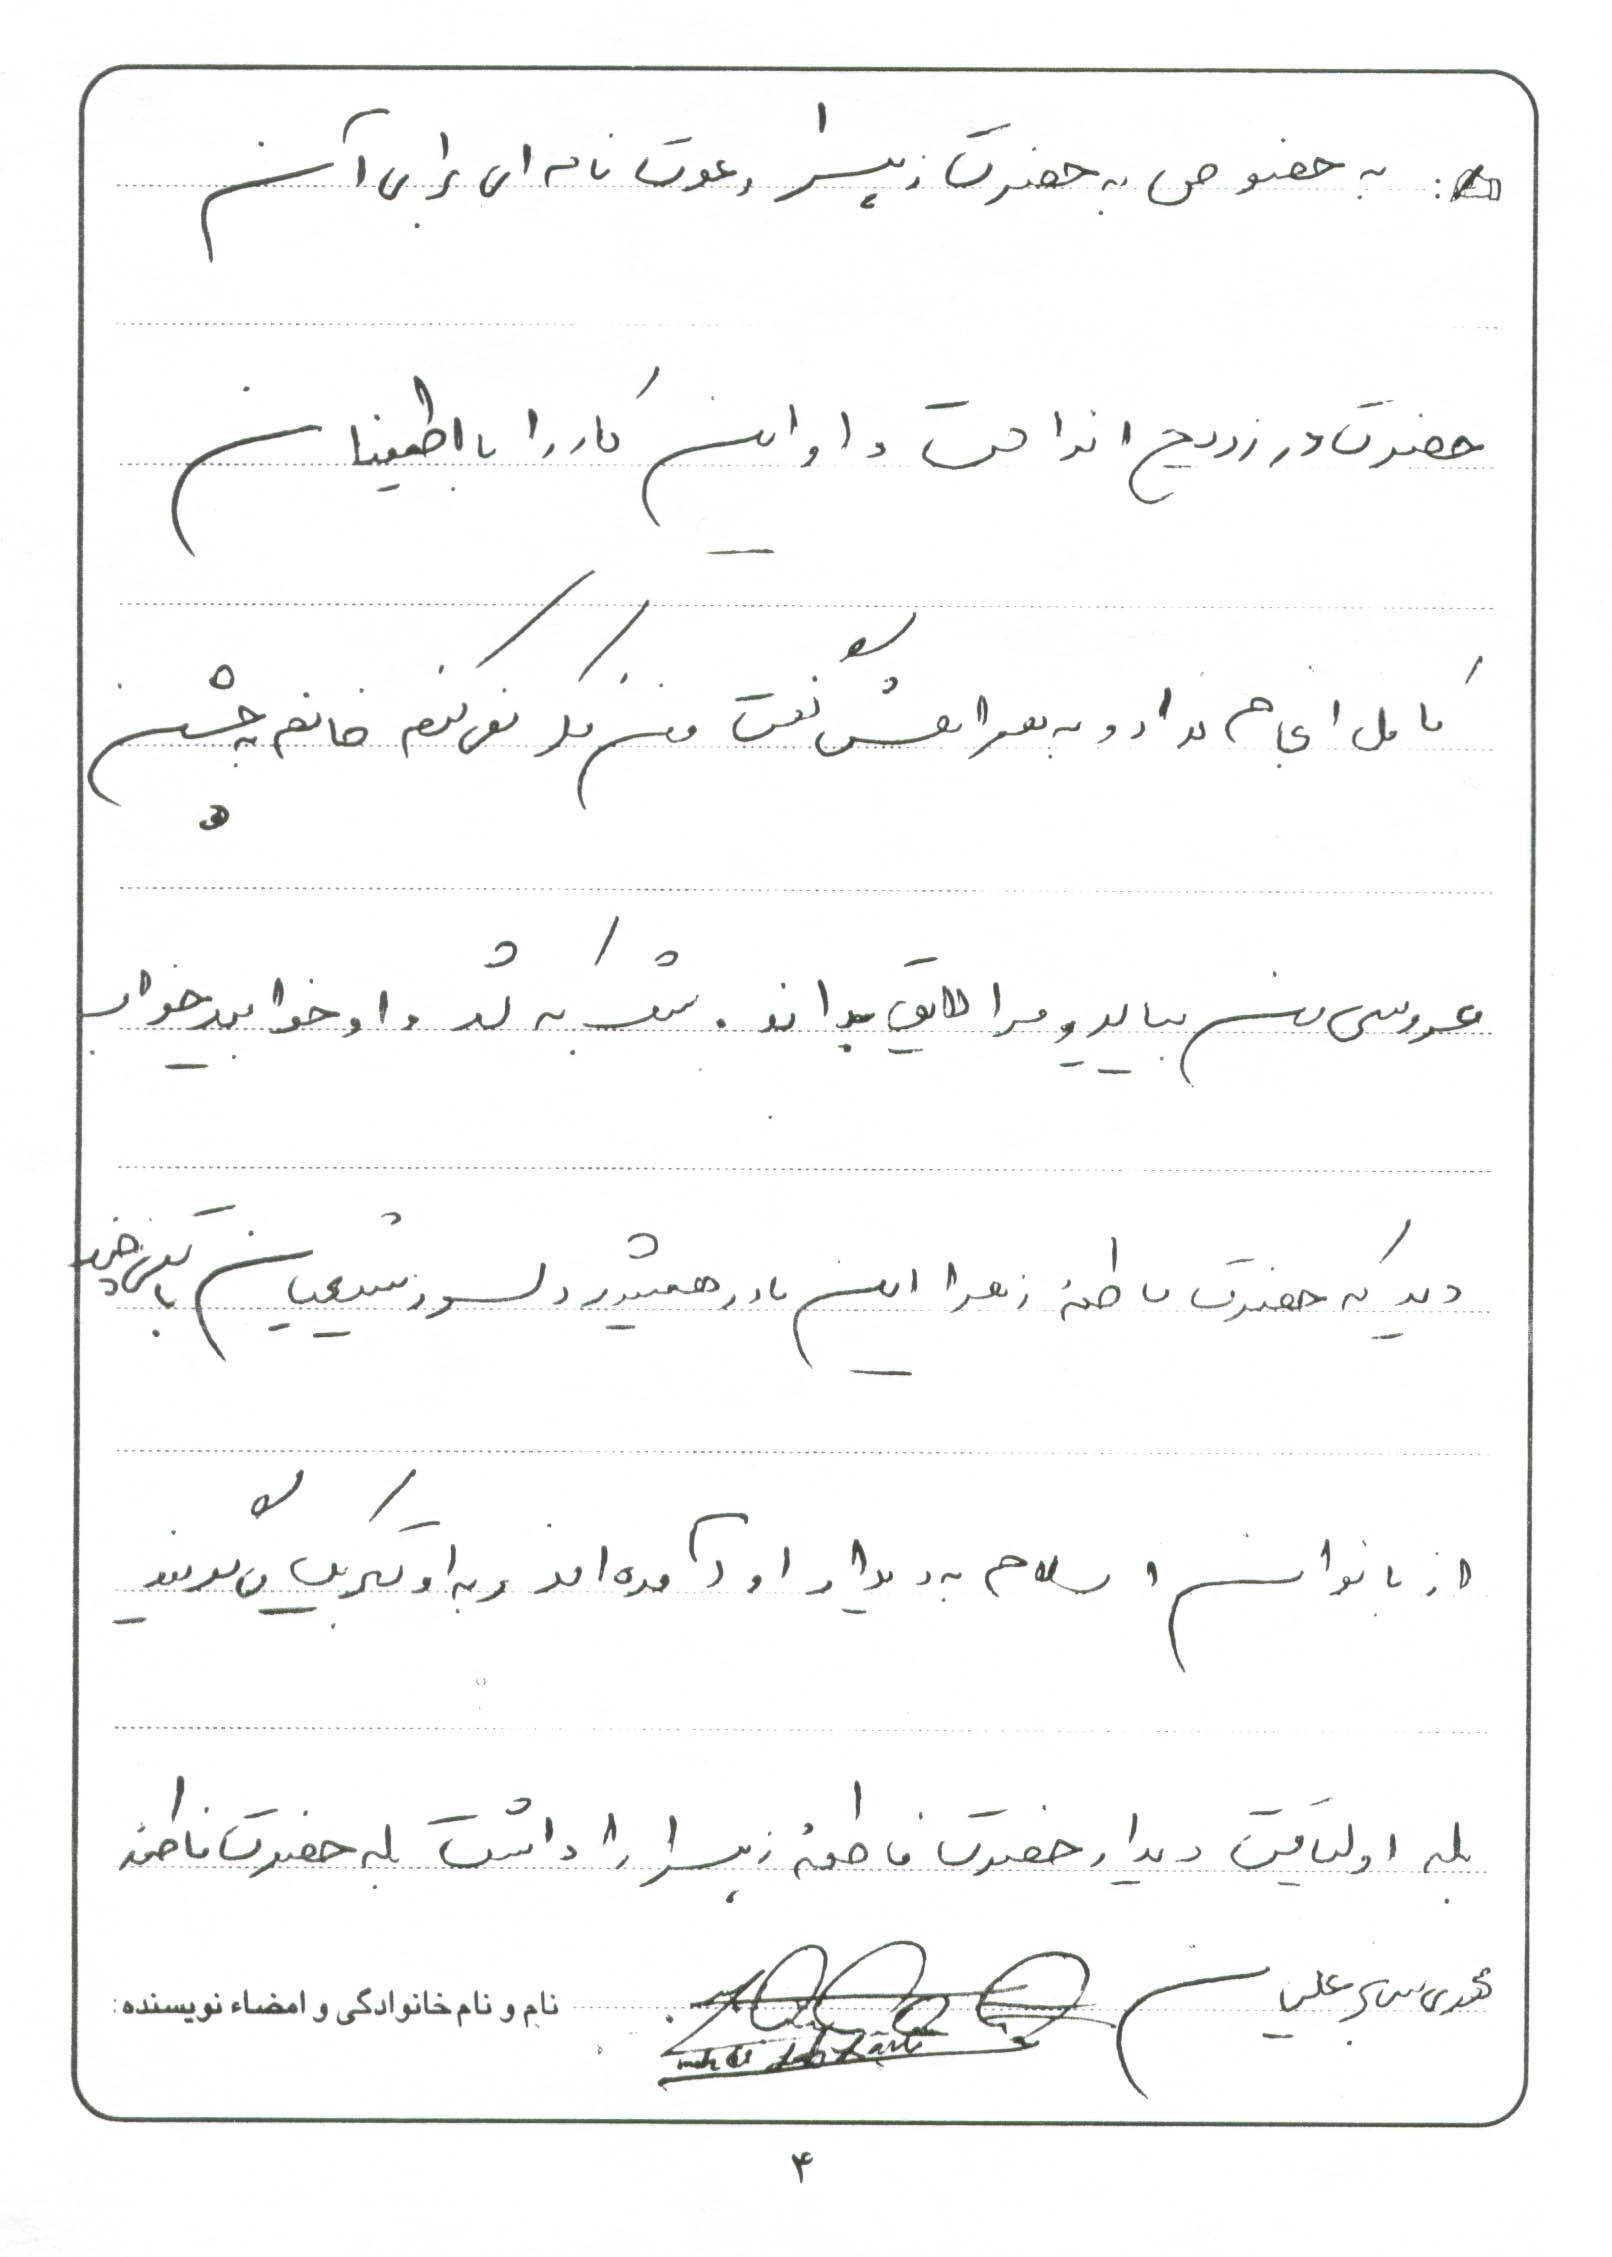 به خصوص به حضرت زهرا دعوت نامه ای برای آن
حضرت در زریح انداخت و او این کار را با اطمینان
کامل انجام نداد و به همراهش گفت من فکر نمی کنم خانم به جشن
عروسی من بیاید و مرا لایق بداند. شب که شد و او خوابید خواب
دید که حضرت فاطمهٔ زهرا این مادر همیشه دلسوز شیعیان با
از بانوان اسلام به دیدار او آمده اند و به او تبریک می گویند
بله او لیاقت دیدار حضرت فاطمهٔ زهرا را داشت بله حضرت فاطمه
نام و نام خانوادگی و امضاء نویسنده:
۴